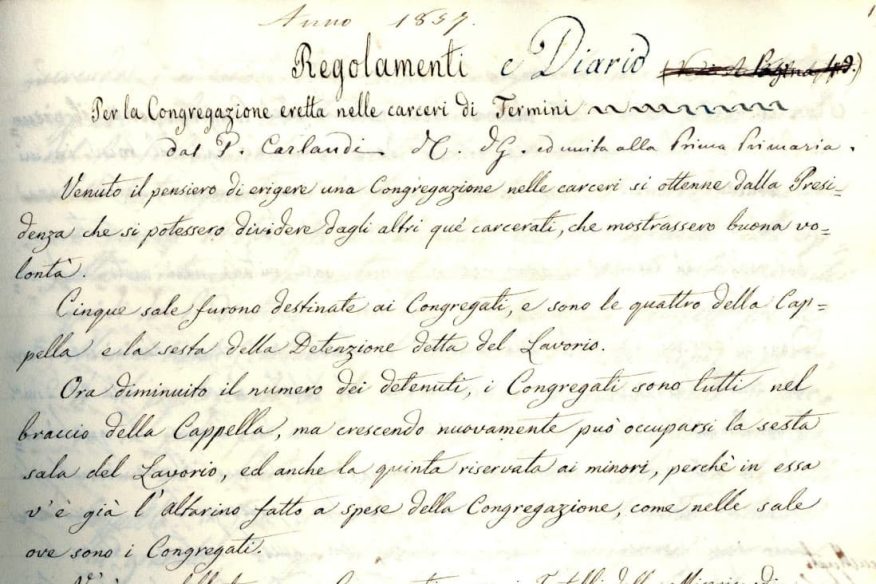 Anno 1857.
1
Regolamenti e Diario
Per la Congregazione eretta nelle carceri di Termini
dal P. Carlandi d. C. d. G. ed unita alla Prima Primaria.
Venuto il pensiero di erigere una Congregazione nelle carceri si ottenne dalla Presi=
denza che si potessero dividere dagli altri que' carcerati, che mostrassero buona vo=
lontà.
Cinque sale furono destinate ai Congregati, e sono le quattro della Cap=
pella e la sesta della Detenzione detta del Lavorio.
Ora diminuito il numero dei detenuti, i Congregati sono tutti nel
braccio della Cappella, ma crescendo nuovamente può occuparsi la sesta
sala del Lavorio, ed anche la quinta riservata ai minori, perchè in essa
v'è già l'altarino fatto a spese della Congregazione, come nelle sale
ove sono i Congregati.